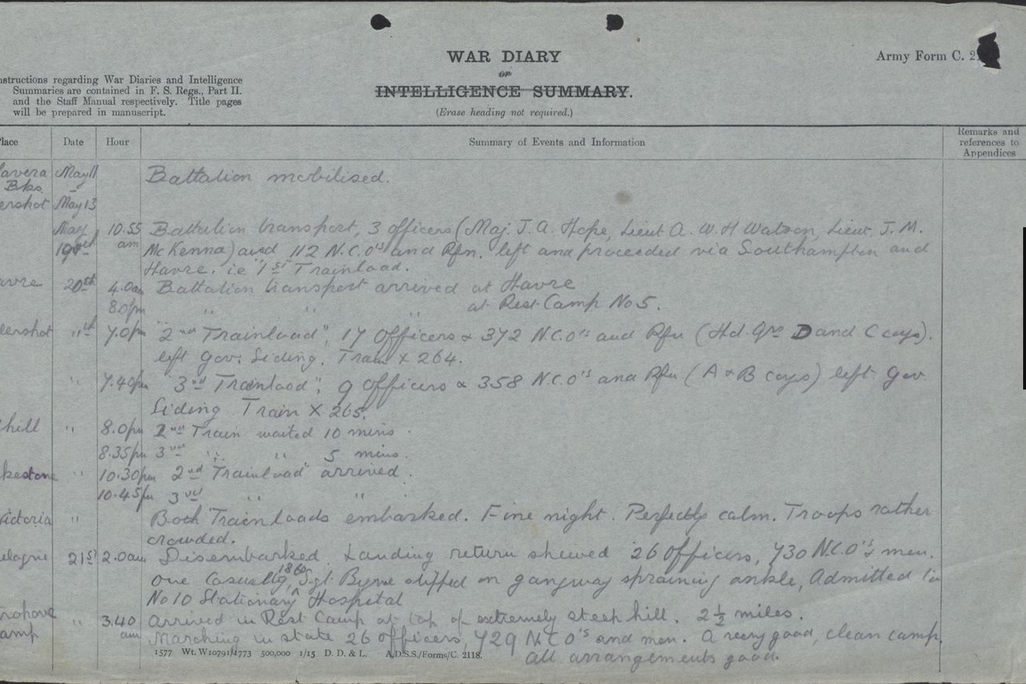 WAR DIARY
Army Form C. 2
or
nstructions regarding War Diaries and Intelligence
Summaries are contained in F. S. Regs., Part II.
and the Staff Manual respectively. Title pages
will be prepared in manuscript.
INTELLIGENCE SUMMARY.
(Erase heading not required.)
lace Date Hour Summary of Events and Information Remarks and
references to
Appendices
avera May 11 Battalion mobilised.
Bks
ershot May 13
May 10.55 Battalion transport, 3 officers (Maj. J. A. Hope, Lieut A. W. H Watson, Lieut. J. M.
19 am McKenna) and 112 N.C.O's and Rfn. left and proceeded via Southampton and
Havre. i.e "1st Trainload.
avre 20th 4.0am Battalion transport arrived at Havre
8.0pm " " at Rest Camp No 5.
lershot " 7.0pm "2nd Trainload", 17 Officers & 372 N.C.O's and Rfn (Hd Qrs D and C coys).
left Gov. Siding. Train X 264.
" 7.40pm "3rd Trainload"; 9 officers & 358 N.C.O's and Rfn (A & B coys) left Gov
Siding Train X 265.
hill " 8.0pm 2nd Train waited 10 mins.
8.35pm 3rd " " 5 mins.
kestone " 10.30pm 2nd Trainload" arrived.
10.45pm 3rd " "
Victoria " Both Trainloads embarked. Fine night. Perfectly calm. Troops rather
crowded.
ulogne 21st 2.0am Disembarked. Landing return shewed 26 officers, 730 N.C.O's men.
one Casualty, Sgt. Byrne slipped on gangway spraining ankle, Admitted to
No 10 Stationary Hospital
" 3.40 arrived in Rest Camp at top of extremely steep hill. 2½ miles.
amp am Marching in state 26 officers, 729 N.C.O's and men. A very good, clean camp.
all arrangements good.
1577 Wt. W10791/1773 500,000 1/15 D. D. & L. A.D.S.S./Forms/C. 2118.